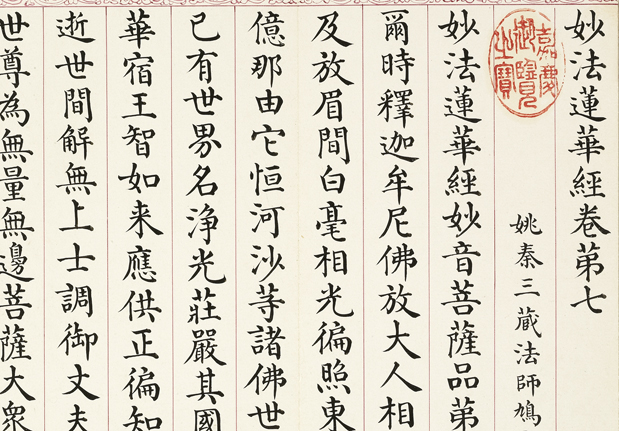 妙法蓮華經卷第七
嘉慶御覽之寶
姚秦三藏法師鳩
妙法蓮華經妙音菩薩品第
爾時釋迦牟尼佛放大人相
及放眉間白毫相光徧照東
億那由它恒河沙等諸佛世
已有世界名浄光莊嚴其國
華宿王智如来應供正徧知
逝世間解無上士調御丈夫
世尊為無量無邊菩薩大衆